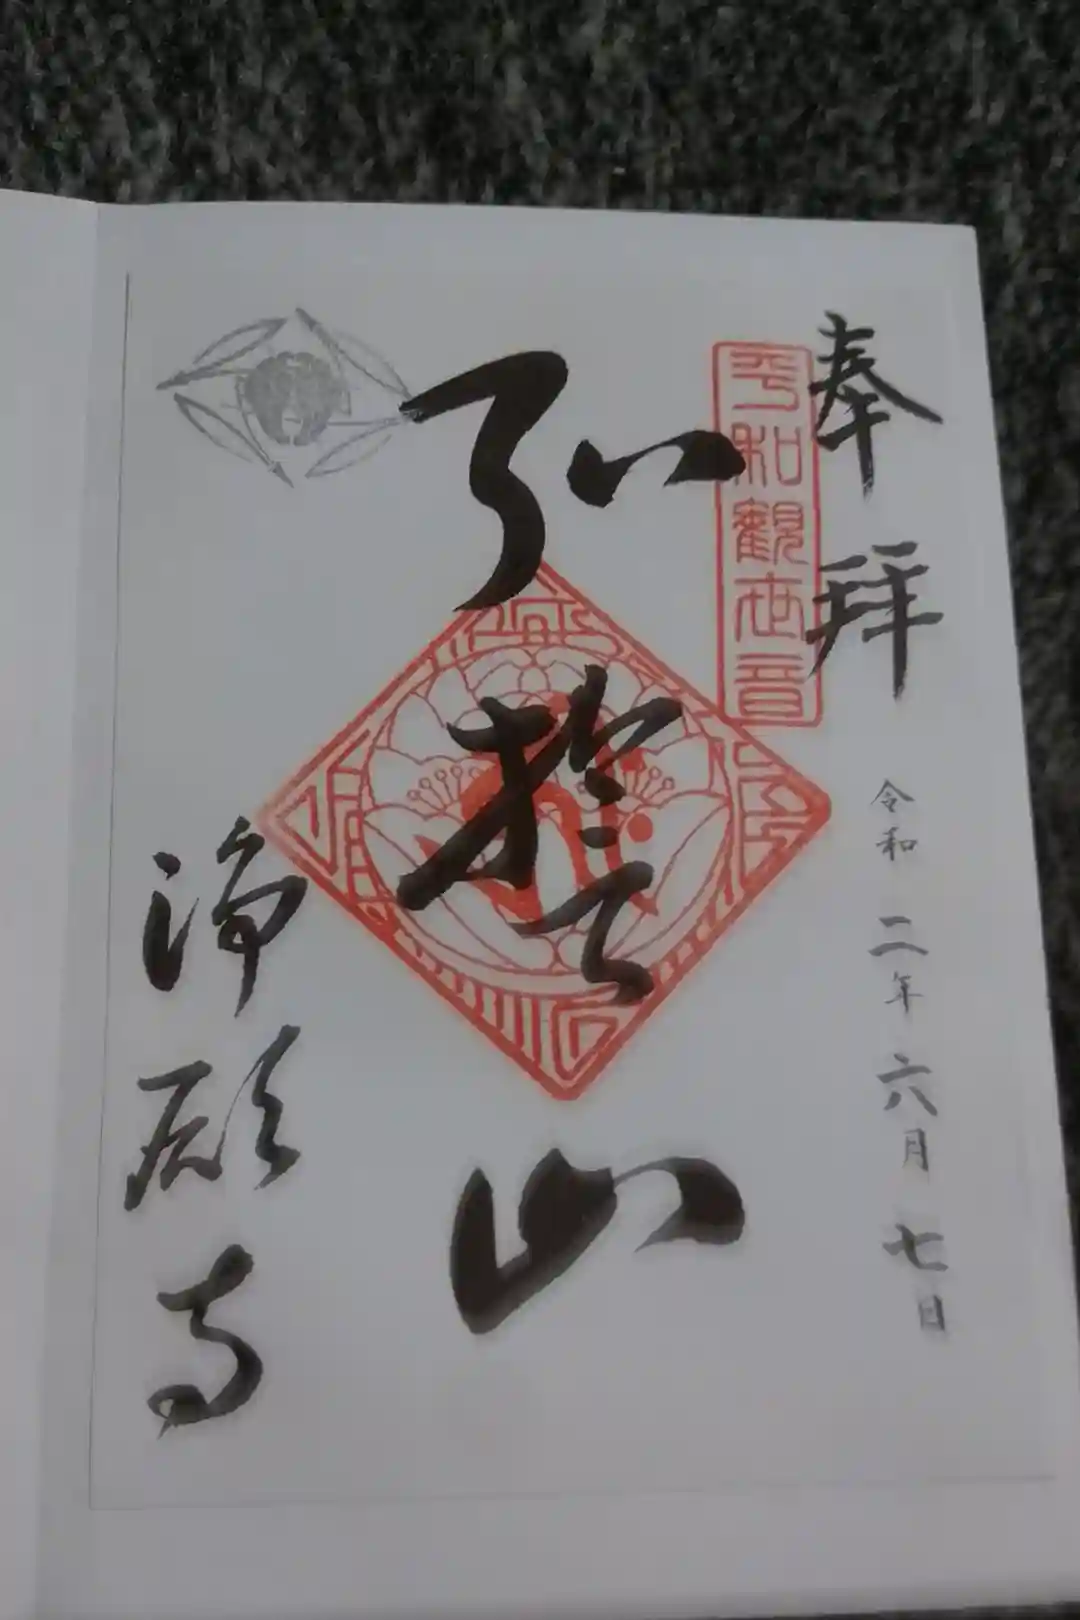 奉拝
令和二年六月七日
平和観世音
弘誓山
浄願寺